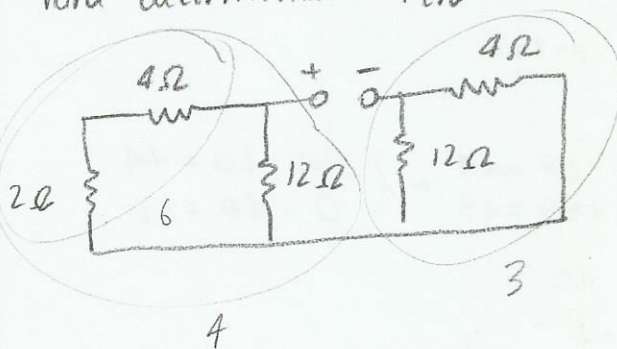 4Ω
+ -
4Ω
2Ω
12Ω
12Ω
6
3
4